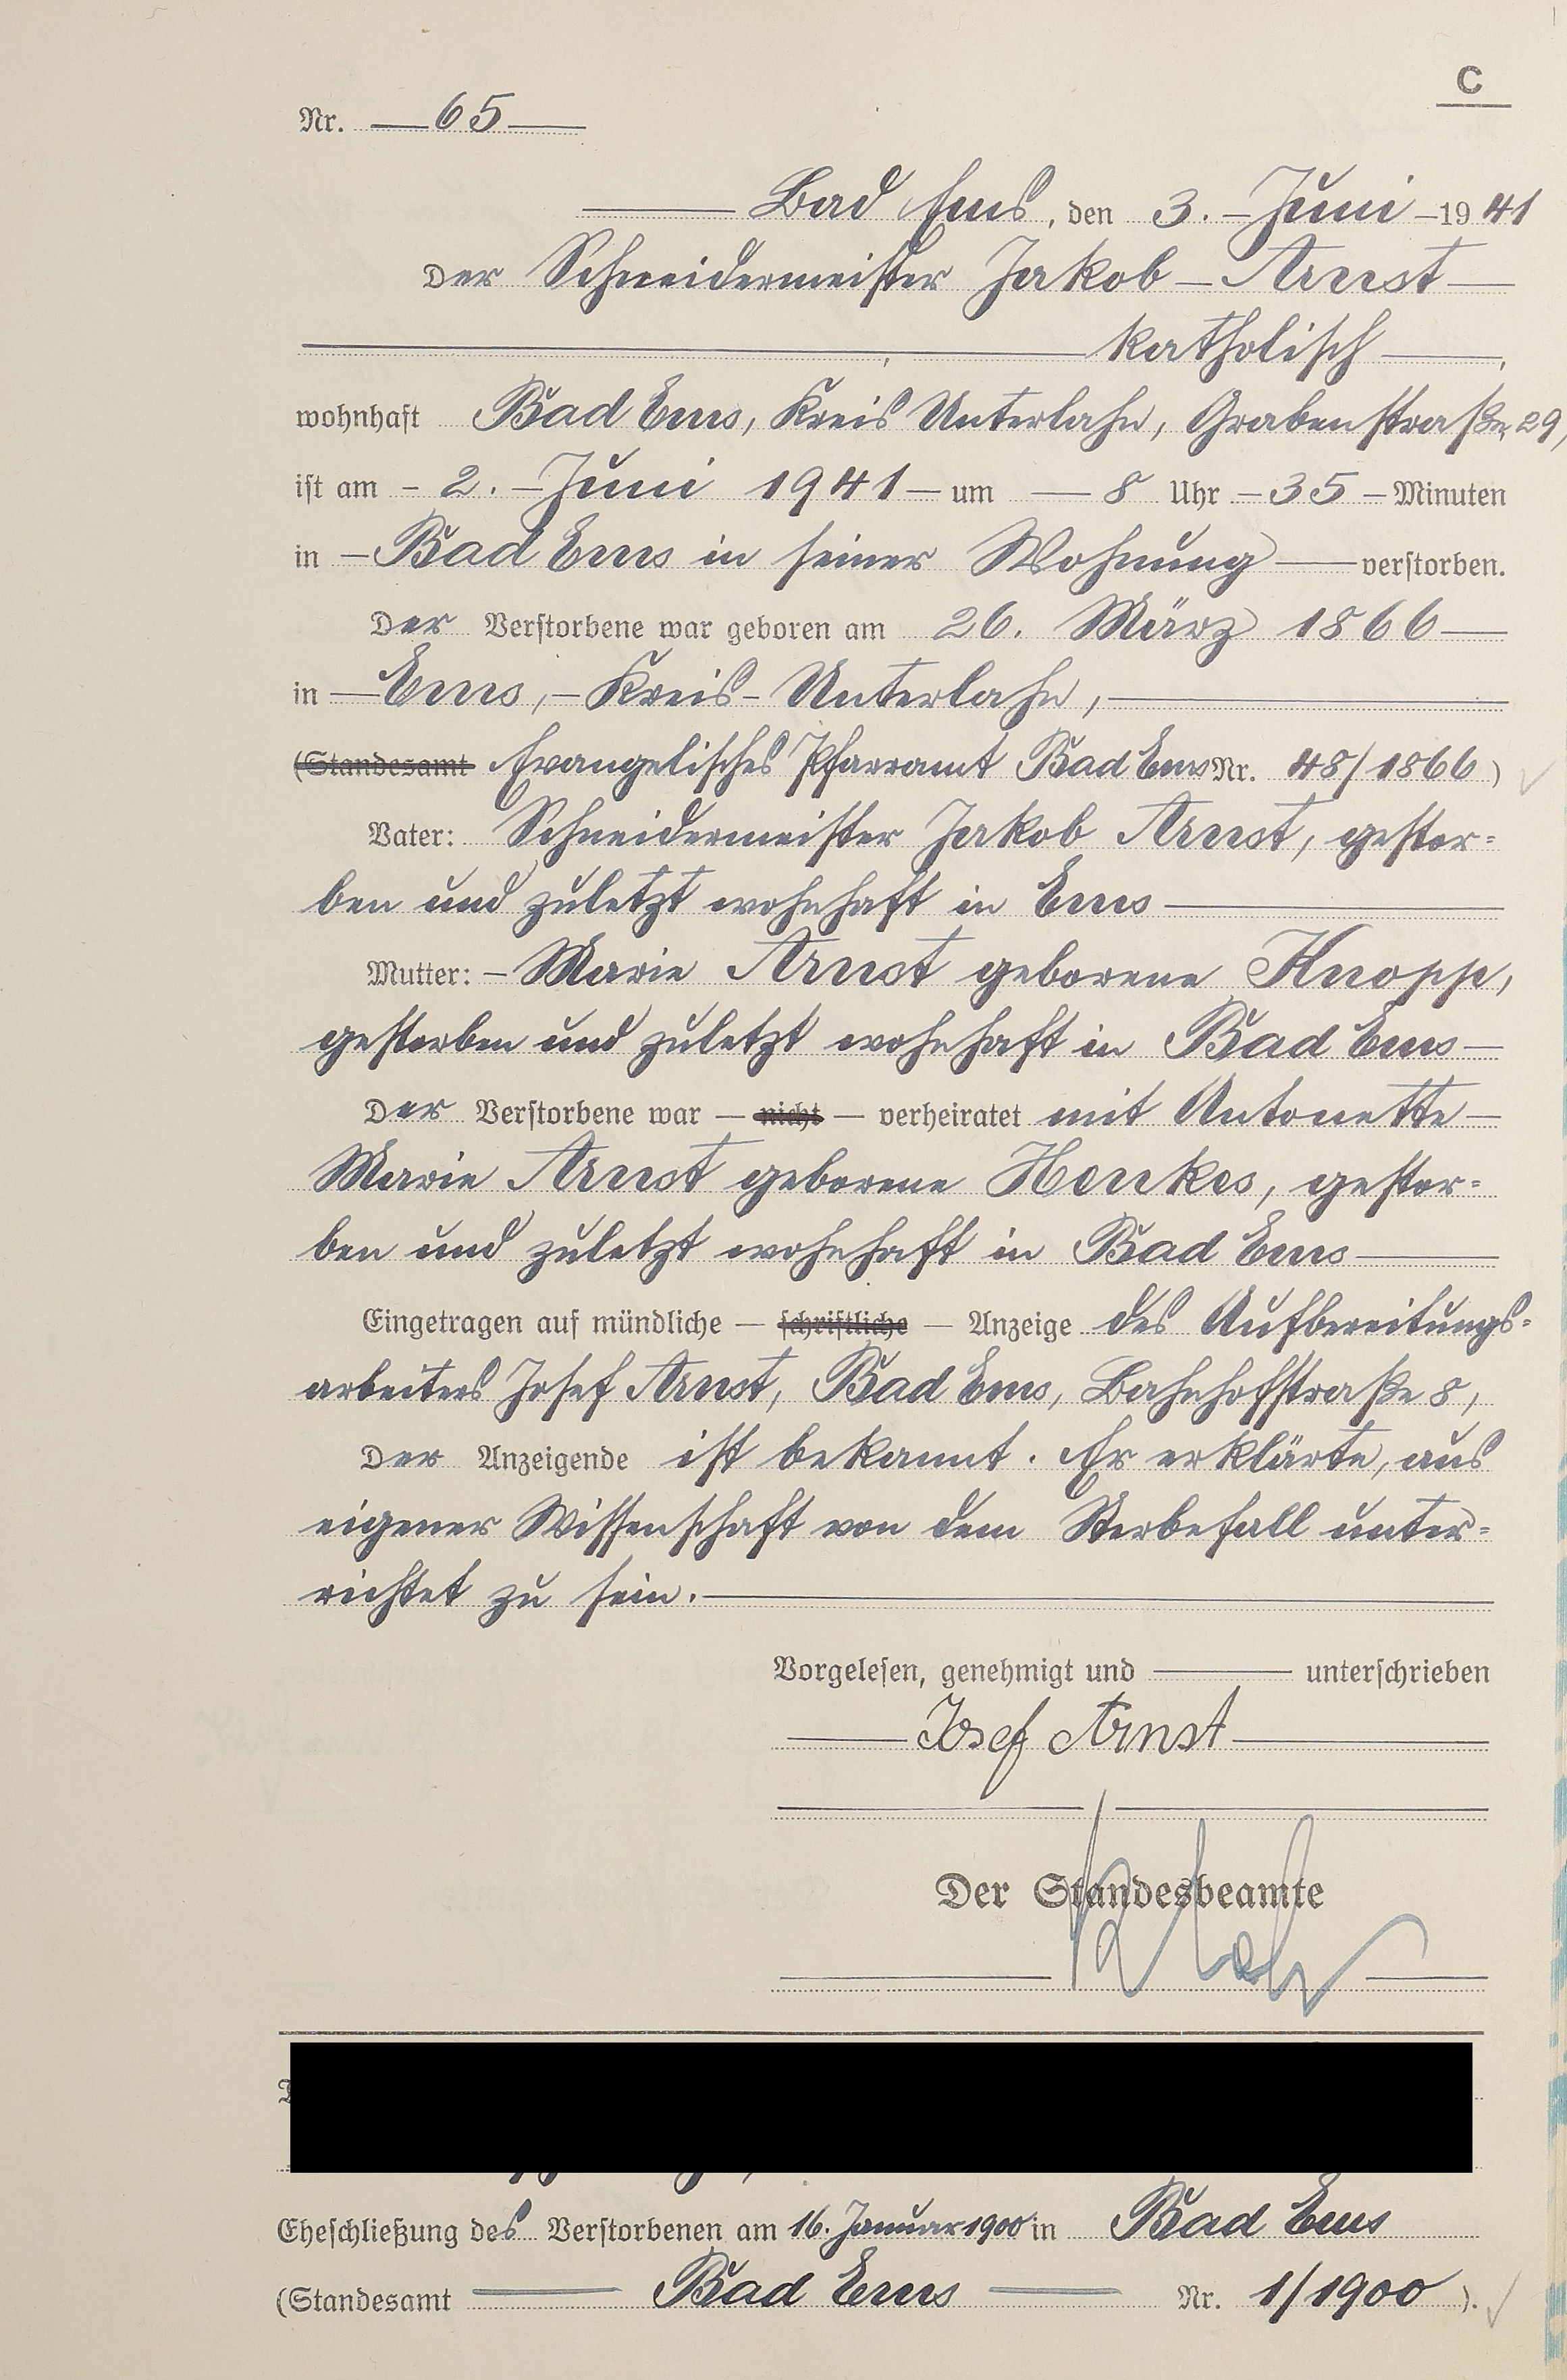 C
Nr. 65
Bad Ems, den 3. Juni 1941
Der Schneidermeister Jakob Arnst
katholisch,
wohnhaft Bad Ems, Kreis Unterlahn, Grabenstraße 29,
ist am 2. Juni 1941 um 8 Uhr 35 Minuten
in Bad Ems in seiner Wohnung verstorben.
Der Verstorbene war geboren am 26. März 1866
in Ems, Kreis Unterlahn,
(Standesamt Evangelisches Pfarramt Bad Ems Nr. 48/1866)
Vater: Schneidermeister Jakob Arnst, gestor-
ben und zuletzt wohnhaft in Ems
Mutter: Marie Arnst geborene Knopp,
gestorben und zuletzt wohnhaft in Bad Ems
Der Verstorbene war – nicht – verheiratet mit Antonette
Marie Arnst geborene Henkes, gestor-
ben und zuletzt wohnhaft in Bad Ems
Eingetragen auf mündliche – schriftliche – Anzeige des Aufbereitungs-
arbeiters Josef Arnst, Bad Ems, Bahnhofstraße 8,
Der Anzeigende ist bekannt. Er erklärte, aus
eigener Wissenschaft von dem Sterbefall unter-
richtet zu sein.
Vorgelesen, genehmigt und unterschrieben
Josef Arnst
Der Standesbeamte
Eheschließung des Verstorbenen am 16. Januar 1900 in Bad Ems
(Standesamt Bad Ems Nr. 1/1900).